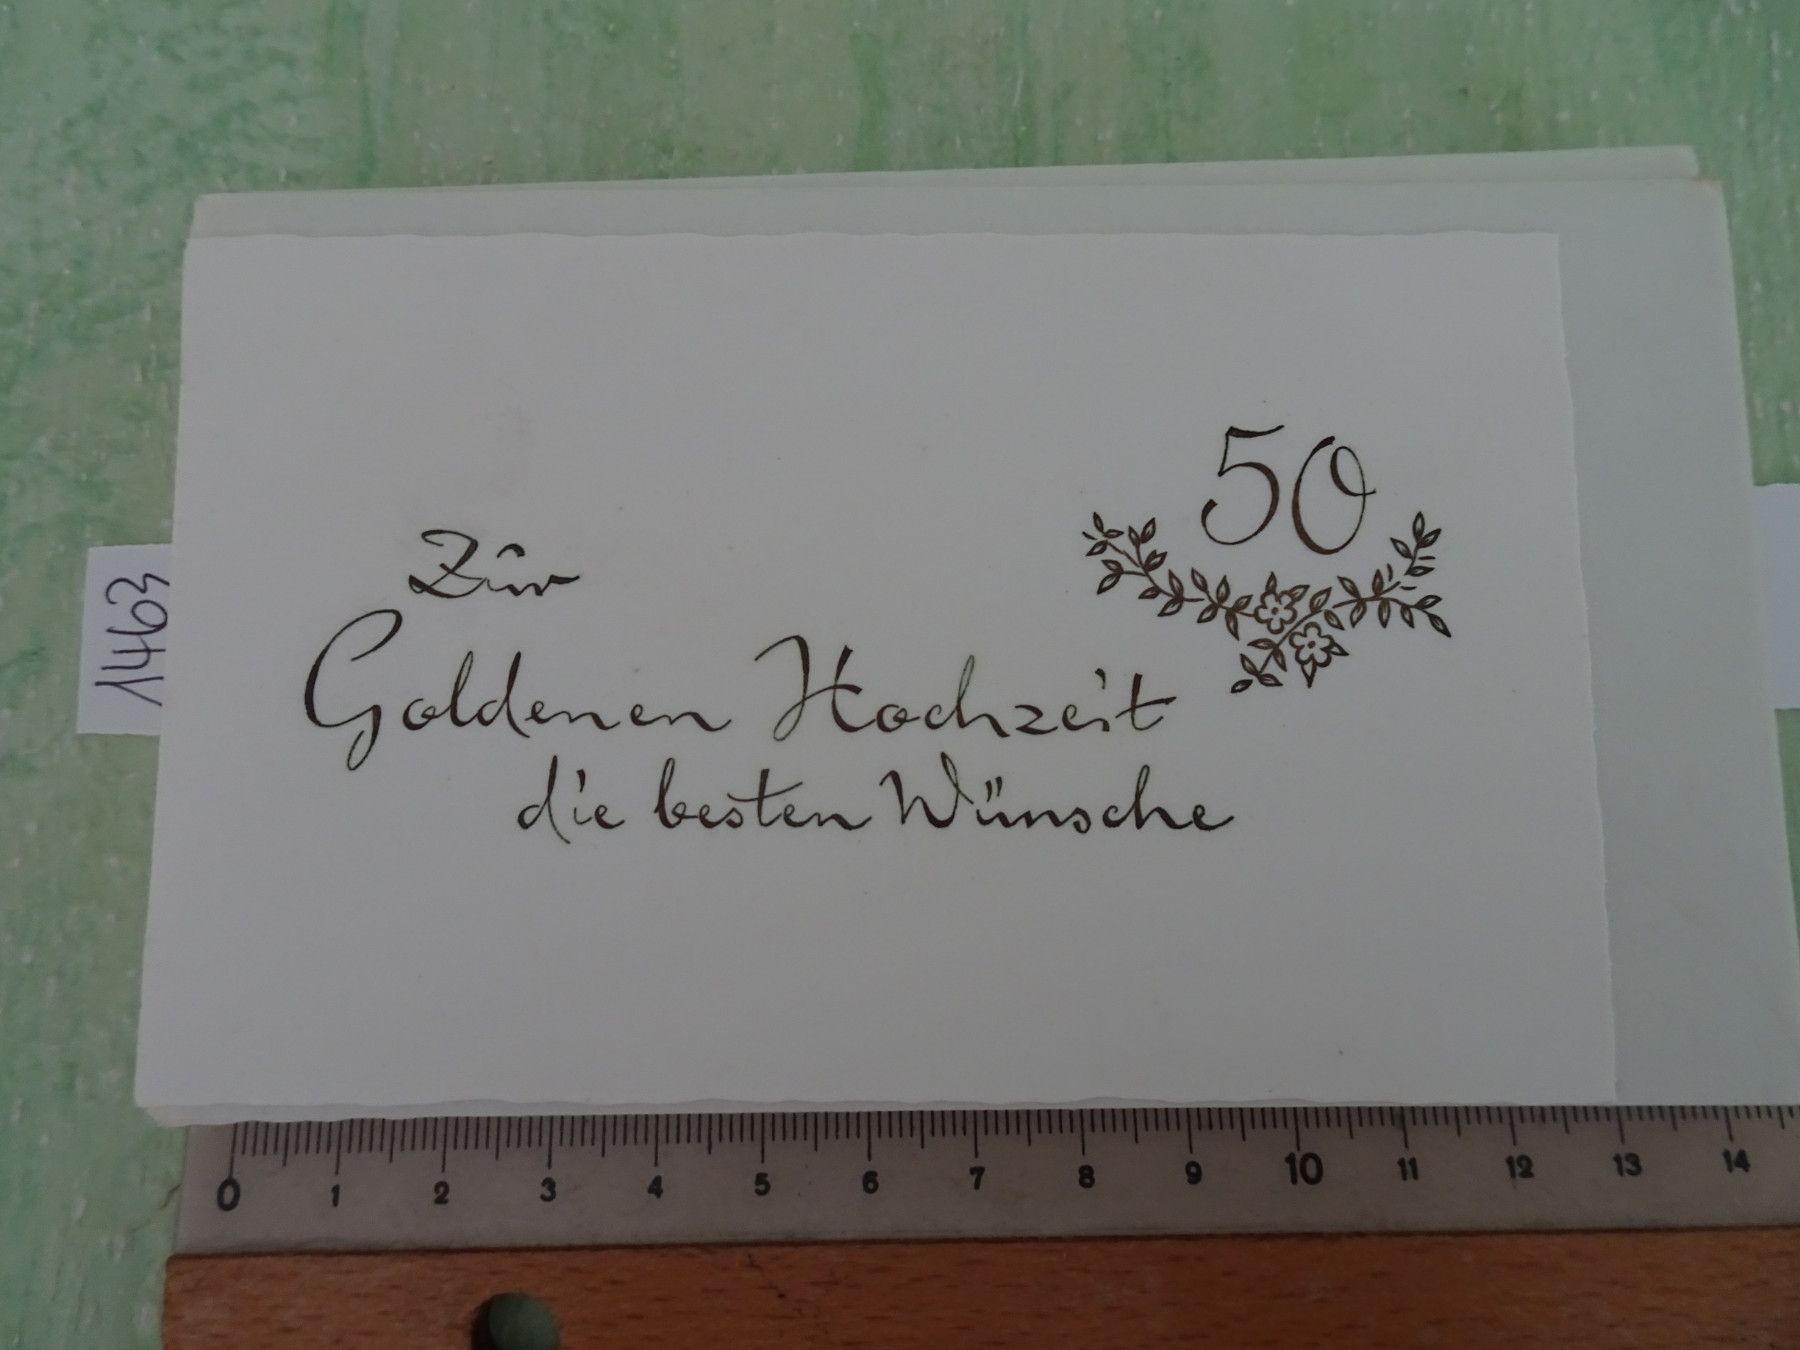 50
Zur
Goldenen Hochzeit
die besten Wünsche
1463
0 1 2 3 4 5 6 7 8 9 10 11 12 13 14